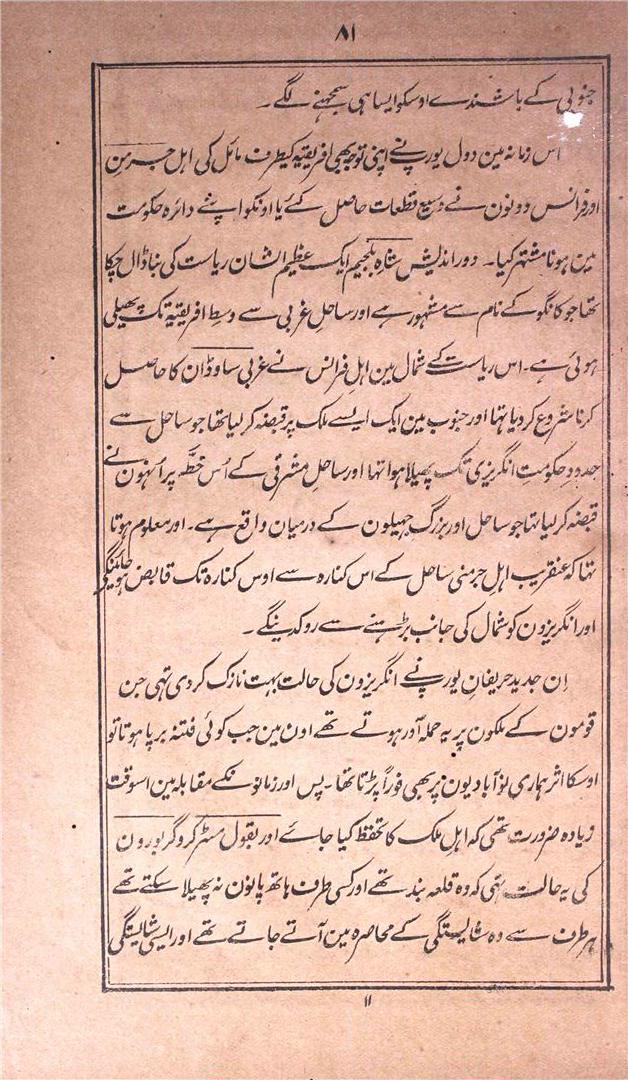 ۸۱
جنوبی کے باشندے اوسکو ایسا ہی سمجھنے لگے۔
اس زمانہ مین دول یورپ نے اپنی توجہ بھی افریقیہ کیطرف مائل کی اہل جرمن
اور فرانس دونون نے وسیع قطعات حاصل کئے یا اونکو اپنے دائرہ حکومت
مین ہونا مشتہر کیا۔ دور اندیش شاہ بلجیم ایک عظیم الشان ریاست کی بنا ڈال چکا
تھا جو کانگو کے نام سے مشہور ہے اور ساحل غربی سے وسط افریقیہ تک پھیلی
ہوئی ہے۔ اس ریاست کے شمال مین اہل فرانس نے غربی ساوڈان کا حاصل
کرنا شروع کر دیا تہا اور جنوب مین ایک ایسے ملک پر قبضہ کر لیا تھا جو ساحل سے
حدودِ حکومتِ انگریزی تک پھیلا ہوا تہا اور ساحلِ مشرقی کے اُس خطّہ پر اُنہون نے
قبضہ کر لیا تہا جو ساحل اور بزرگ جہیلون کے درمیان واقع ہے۔ اور معلوم ہوتا
تہا کہ عنقریب اہلِ جرمنی ساحل کے اس کنارہ سے اوس کنارہ تک قابض ہو جائینگے
اور انگریزون کو شمال کی جانب بڑہنے سے روکدینگے۔
اِن جدید حریفانِ یورپ نے انگریزون کی حالت بہت نازک کر دی تہی جن
قومون کے ملکون پر یہ حملہ آور ہوتے تھے اون مین جب کوئی فتنہ برپا ہوتا تو
اوسکا اثر ہماری نوآبادیون پر بھی فوراً پڑتا تھا۔ پس اور زمانونکے مقابلہ مین اسوقت
زیادہ ضرورت تھی کہ اہلِ ملک کا تحفظ کیا جائے اور بقول مسٹر کروگر بورون
کی یہ حالت تہی کہ وہ قلعہ بند تھے اور کسی طرف ہاتھ پانؤن نہ پھیلا سکتے تھے
ہر طرف سے وہ شایستگی کے محاصرہ مین آتے جاتے تھے اور ایسی شایستگی
۱۱